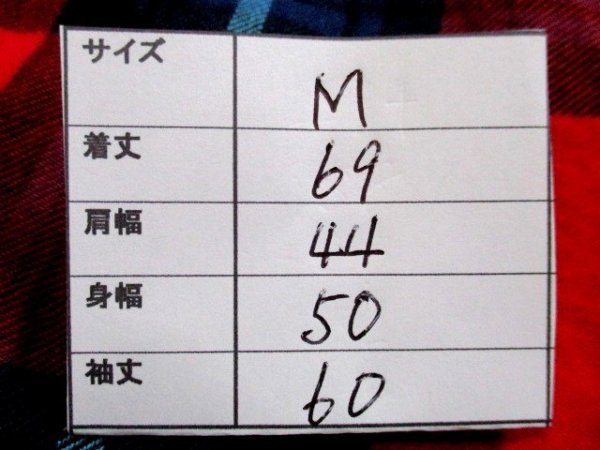 サイズ M
着丈 69
肩幅 44
身幅 50
袖丈 60